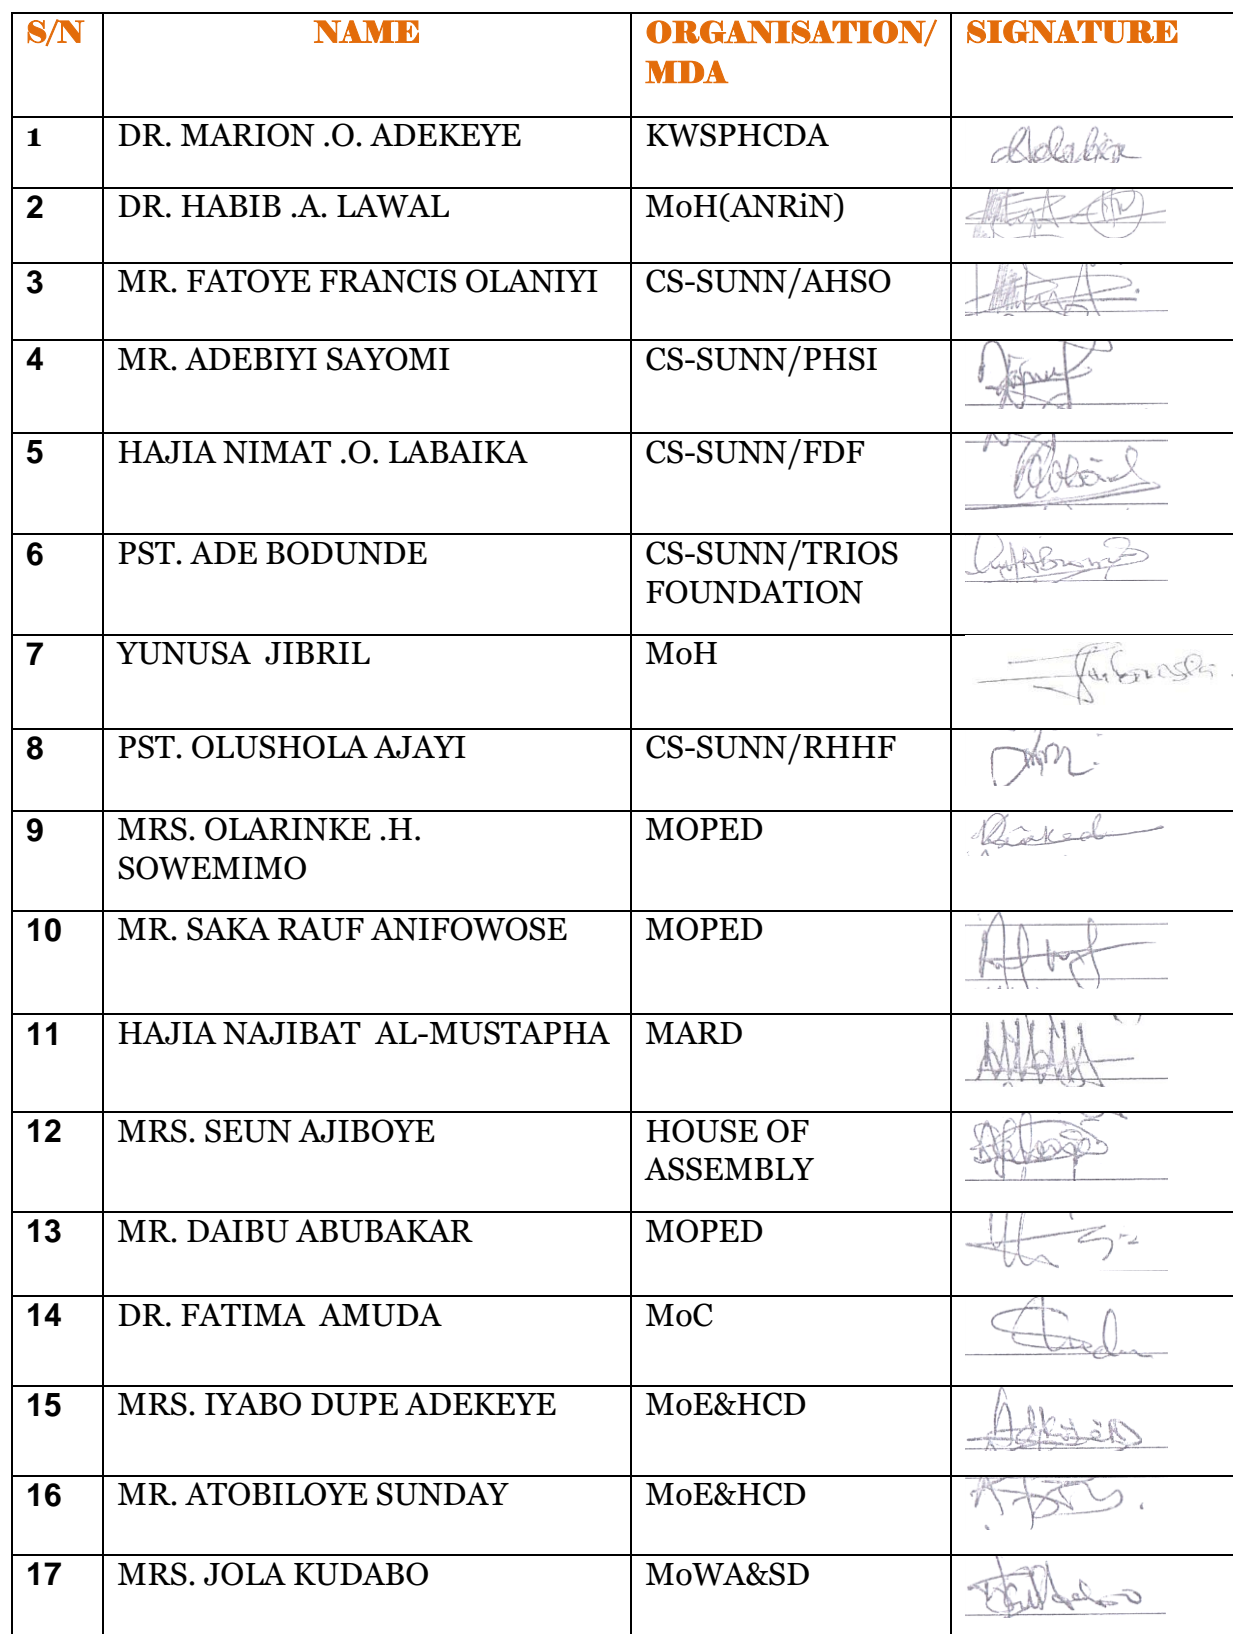 S/N NAME ORGANISATION/ SIGNATURE
MDA
1 DR. MARION .O. ADEKEYE KWSPHCDA
2 DR. HABIB .A. LAWAL MoH(ANRiN)
3 MR. FATOYE FRANCIS OLANIYI CS-SUNN/AHSO
4 MR. ADEBIYI SAYOMI CS-SUNN/PHSI
5 HAJIA NIMAT .O. LABAIKA CS-SUNN/FDF
6 PST. ADE BODUNDE CS-SUNN/TRIOS
FOUNDATION
7 YUNUSA JIBRIL MoH
8 PST. OLUSHOLA AJAYI CS-SUNN/RHHF
9 MRS. OLARINKE .H. MOPED
SOWEMIMO
10 MR. SAKA RAUF ANIFOWOSE MOPED
11 HAJIA NAJIBAT AL-MUSTAPHA MARD
12 MRS. SEUN AJIBOYE HOUSE OF
ASSEMBLY
13 MR. DAIBU ABUBAKAR MOPED
14 DR. FATIMA AMUDA MoC
15 MRS. IYABO DUPE ADEKEYE MoE&HCD
16 MR. ATOBILOYE SUNDAY MoE&HCD
17 MRS. JOLA KUDABO MoWA&SD